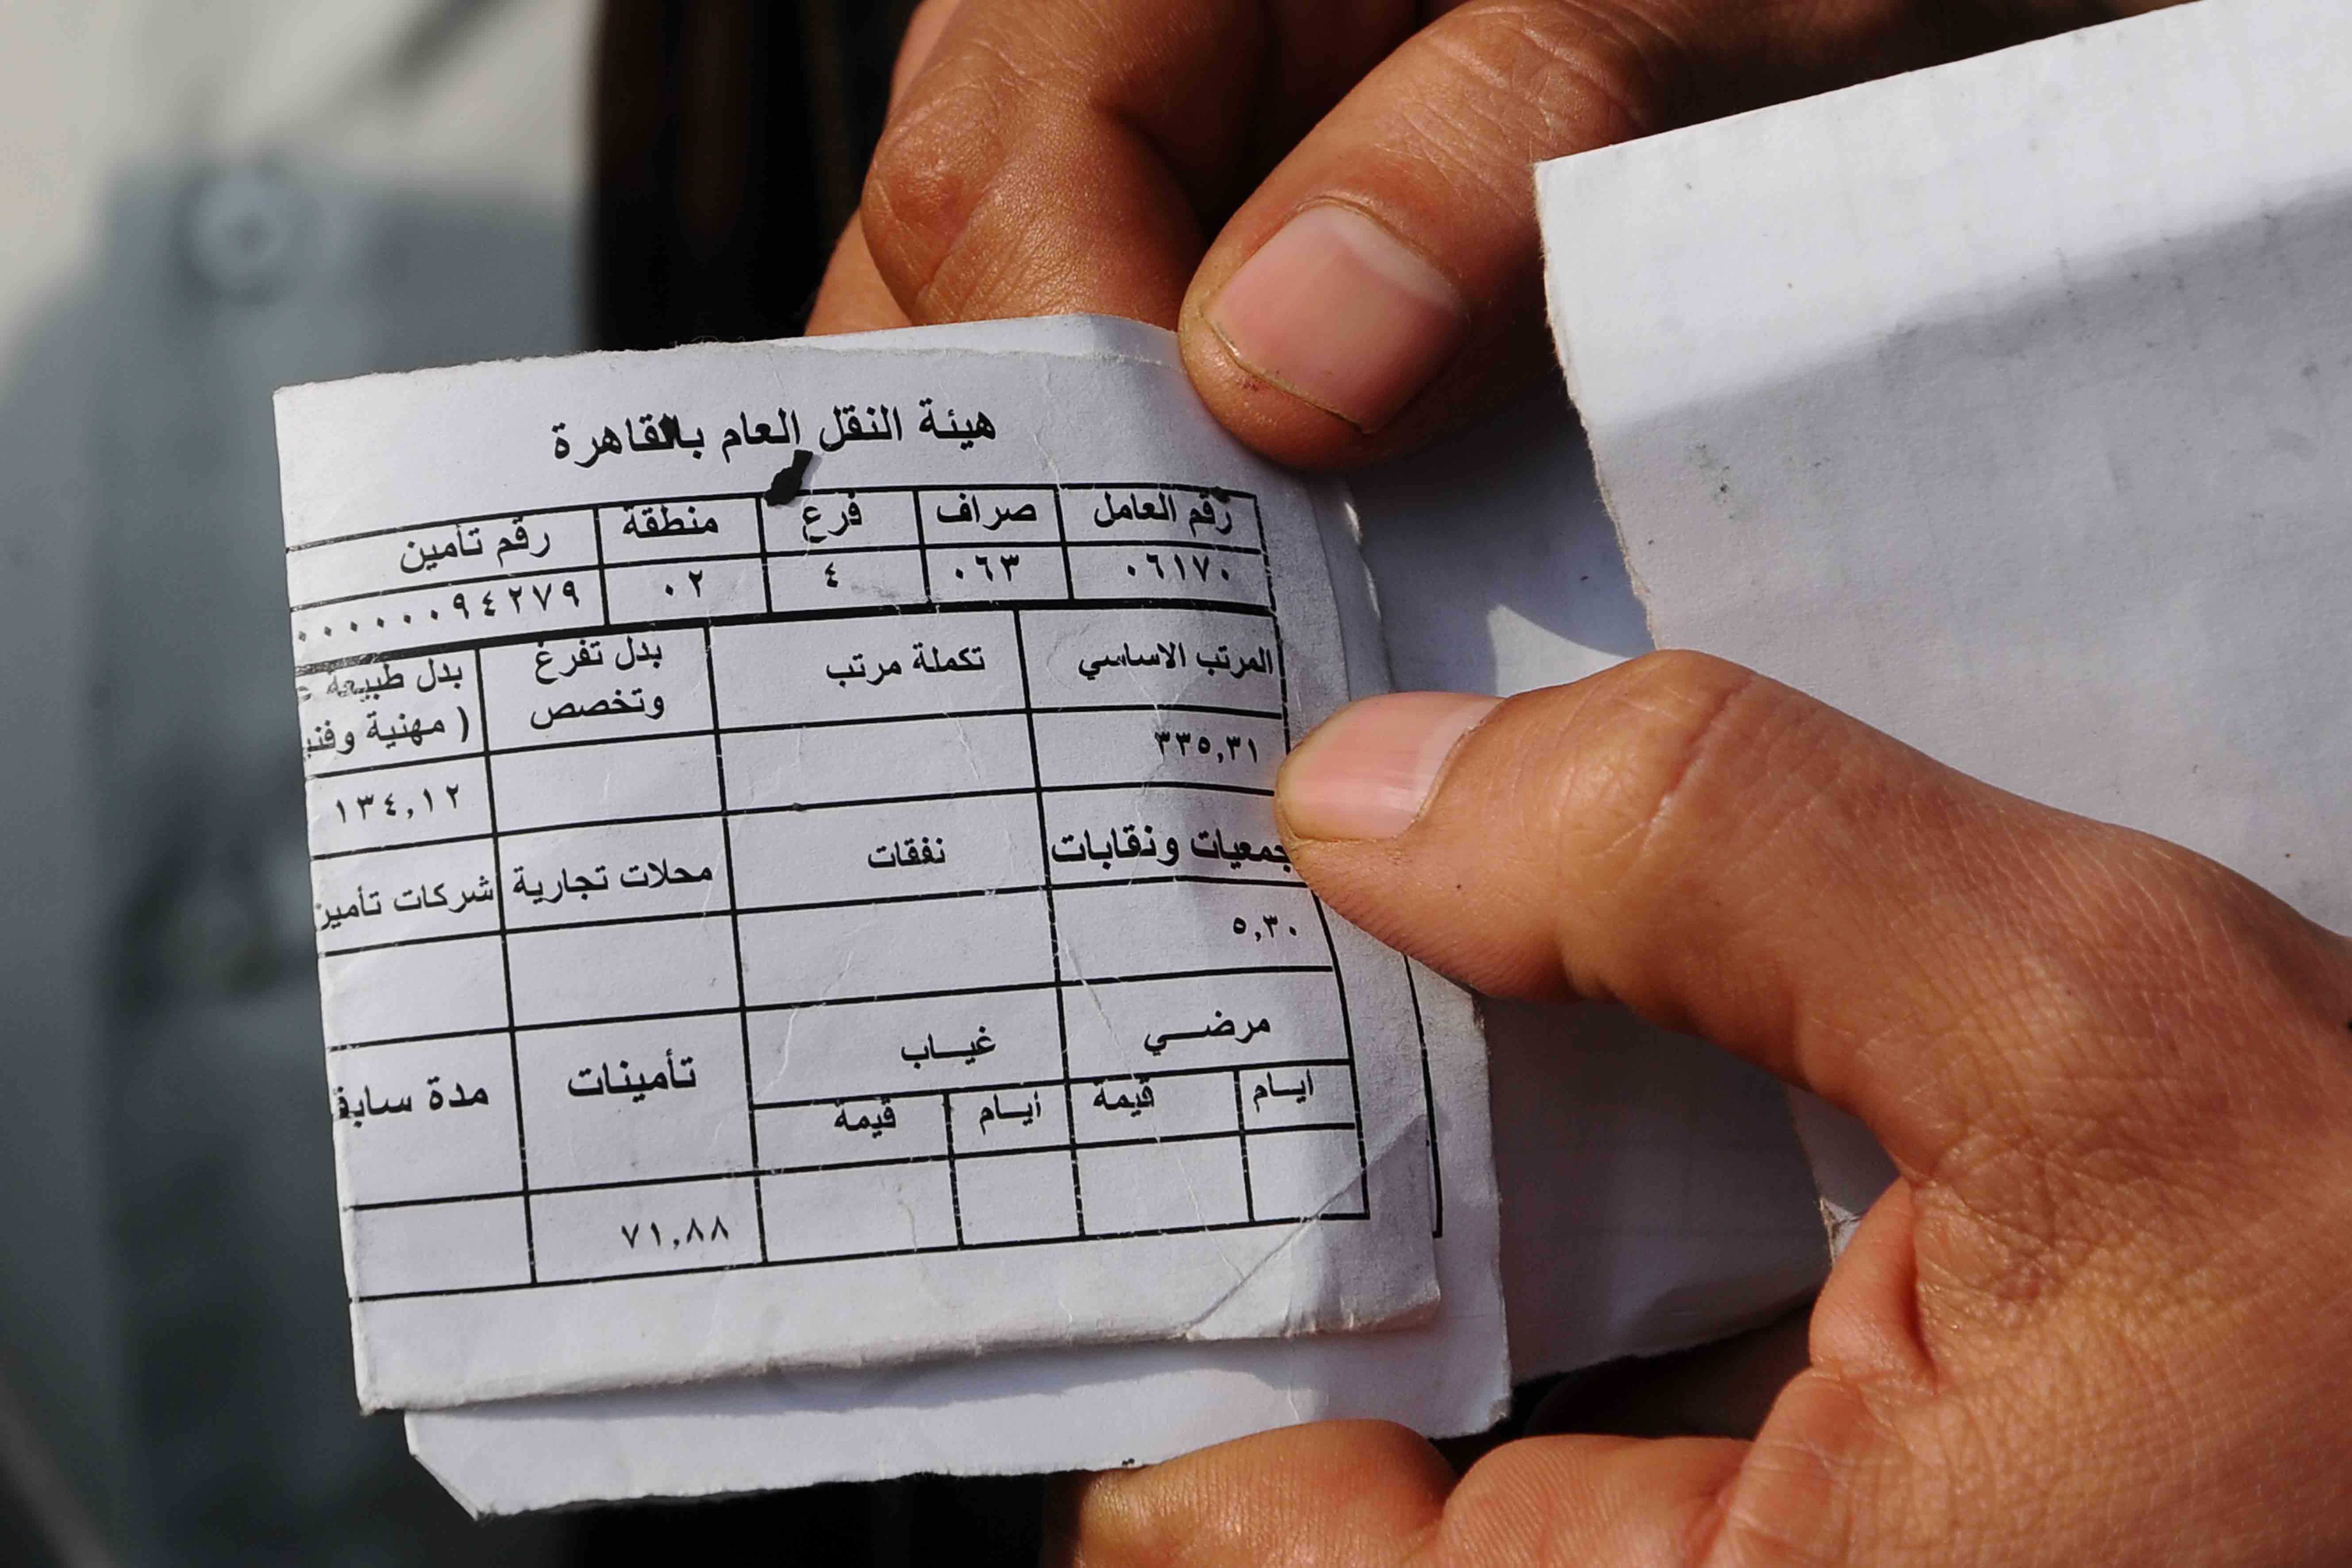 هيئة النقل العام بالقاهرة
رقم العامل صراف فرع منطقة رقم تأمين
٠٦١٧٠ ٠٦٣ ٤ ٠٢ ٠٠٠٠٠٠٩٤٢٧٩
المرتب الاساسي تكملة مرتب بدل تفرغ وتخصص بدل طبيعة
( مهنية
٣٣٥,٣١ ١٣٤,١٢
جمعيات ونقابات نفقات محلات تجارية شركات تأمين
٥,٣٠
مرضي غياب تأمينات مدة
ايام قيمة ايام قيمة
٧١,٨٨